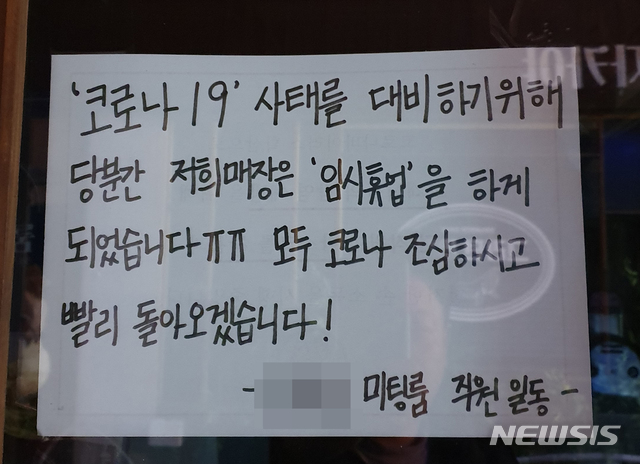 '코로나 19' 사태를 대비하기위해
당분간 저희매장은 '임시휴업'을 하게
되었습니다ㅠㅠ 모두 코로나 조심하시고
빨리 돌아오겠습니다!
- 미팅룸 직원 일동 -
NEWSIS